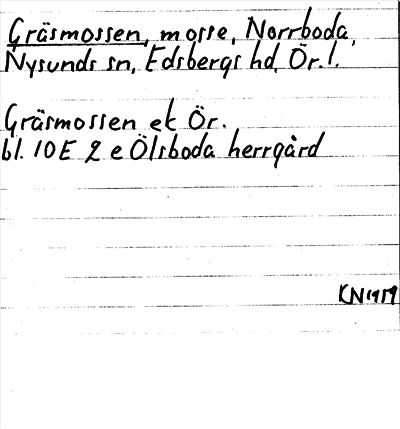 Gräsmossen, mosse, Norrboda,
Nysunds sn, Edsbergs hd, Ör. l.
Gräsmossen ek Ör.
bl. 10E 2 e Ölsboda herrgård
KN 1959